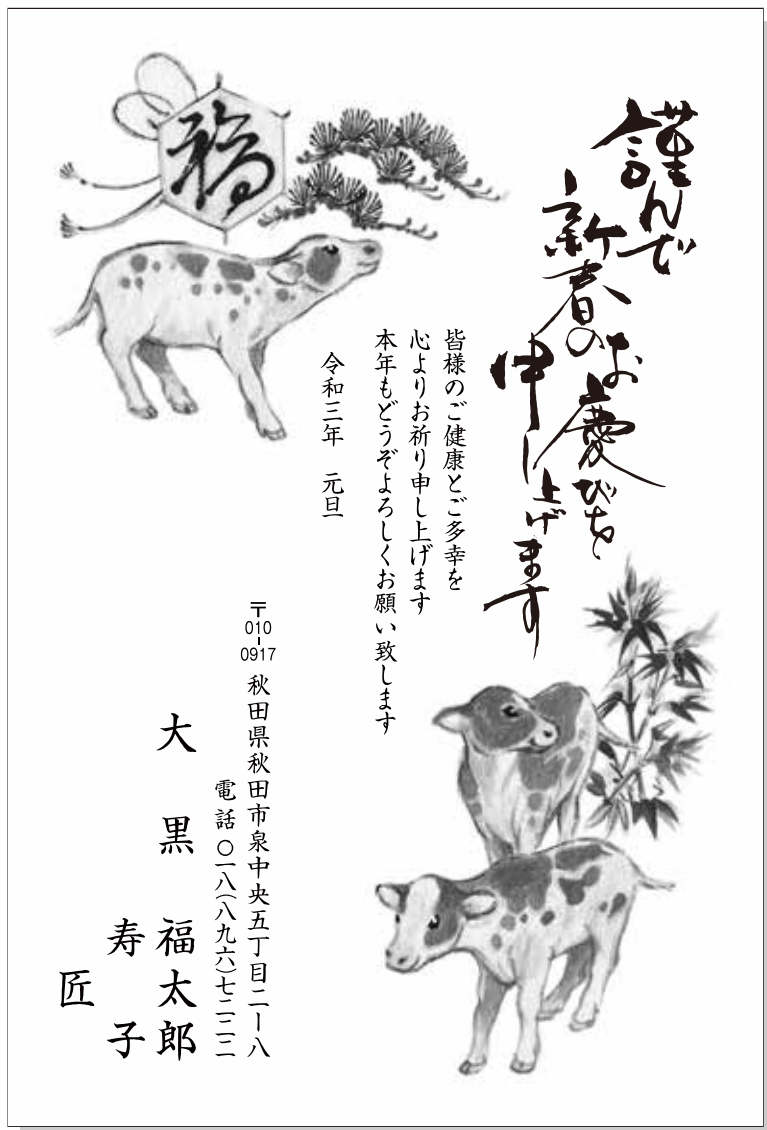 謹んで
新春の
お慶びを
申し上げます
皆様のご健康とご多幸を
心よりお祈り申し上げます
本年もどうぞよろしくお願い致します
令和三年　元旦
福
〒010-0917
秋田県秋田市泉中央五丁目二ー八
電話〇一八(八九六)七二二二
大黒　福太郎
寿子
匠